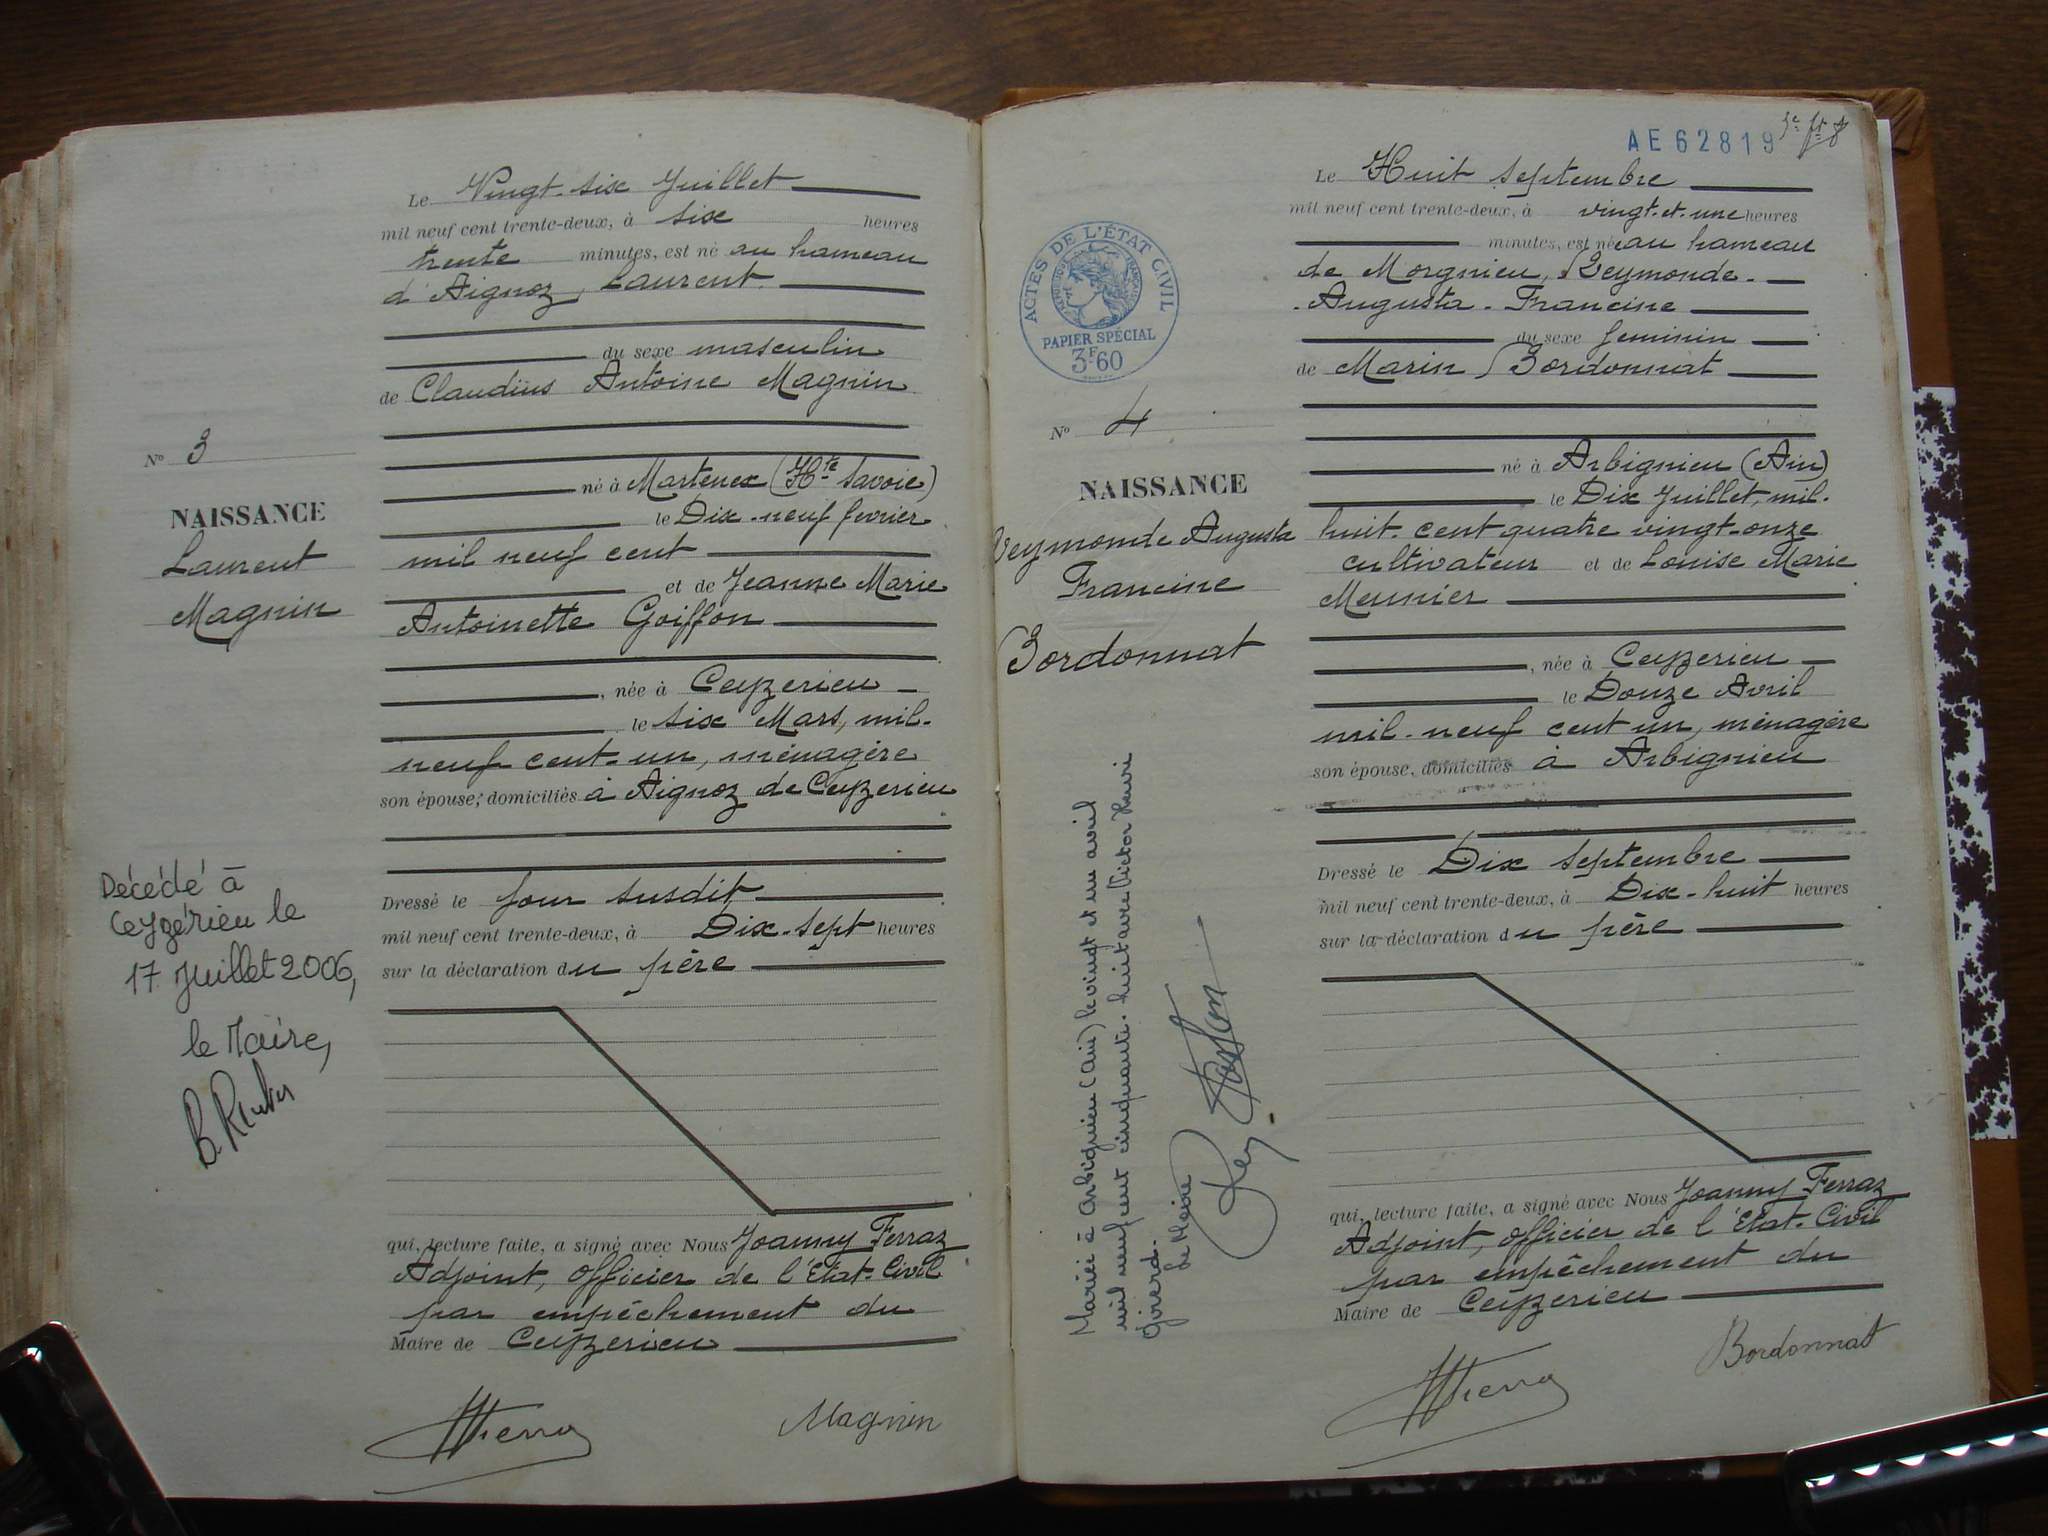 Le Vingt-six Juillet
mil neuf cent trente-deux, à six heures
trente minutes, est né au hameau
d'Aignoz, Laurent
du sexe masculin
de Claudius Antoine Magnin
né à Martenex (Hte Savoie)
le Dix-neuf fevrier
mil neuf cent
et de Jeanne Marie
Antoinette Goiffon
, née à Ceyzerieu
le six Mars, mil-
neuf cent-un, ménagère
son épouse; domiciliés à Aignoz de Ceyzerieu
Dressé le jour susdit
mil neuf cent trente-deux, à Dix-sept heures
sur la déclaration du père
qui, lecture faite, a signé avec Nous Joanny Ferraz
Adjoint, officier de l'Etat-Civil
par empêchement du
Maire de Ceyzerieu
Magnin
No 3
NAISSANCE
Laurent
Magnin
Décédé à
Ceyzérieu le
17 Juillet 2006,
le Maire,
AE 62819
Le Huit septembre
mil neuf cent trente-deux, à vingt-et-une heures
minutes, est née au hameau
de Morgnieu, Reymonde-
Augusta-Francine
du sexe feminin
de Marin Bordonnat
né à Arbignieu (Ain)
le Dix Juillet, mil-
huit-cent quatre vingt-onze
cultivateur et de Louise Marie
Meunier
, née à Ceyzerieu
le Douze Avril
mil-neuf cent un, ménagère
son épouse, domiciliés à Arbignieu
Dressé le Dix septembre
mil neuf cent trente-deux, à Dix-huit heures
sur la déclaration du père
qui, lecture faite, a signé avec Nous Joanny Ferraz
Adjoint, officier de l'Etat-Civil
par empêchement du
Maire de Ceyzerieu
Bordonnat
ACTES DE L'ÉTAT CIVIL
PAPIER SPÉCIAL
3F60
No 4
NAISSANCE
Reymonde Augusta
Francine
Bordonnat
Mariée à Arbignieu (Ain) le vingt et un avril
mil neuf cent cinquante. huit avec Victor Henri
Girerd.
Le Maire